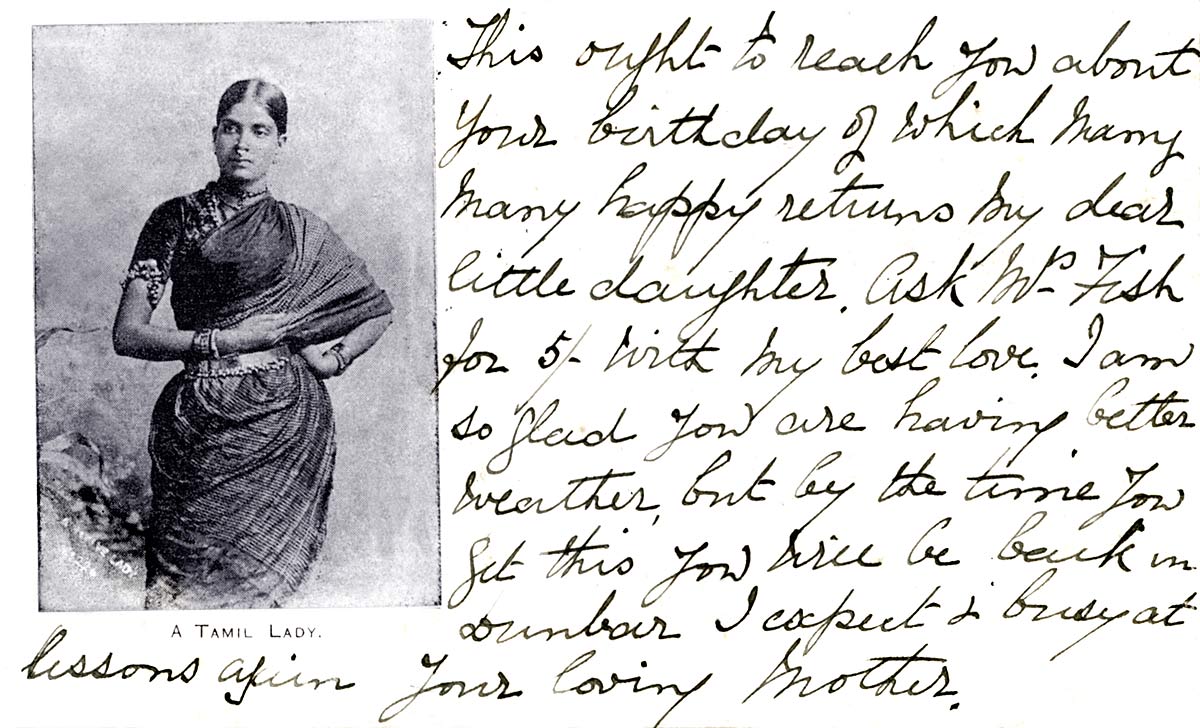 This ought to reach you about
your birthday of which many
many happy returns my dear
little daughter. Ask Mrs Fish
for 5/- with my best love. I am
so glad you are having better
weather, but by the time you
get this you will be back in
Dunbar I expect & busy at
lessons again Your loving Mother.
A TAMIL LADY.